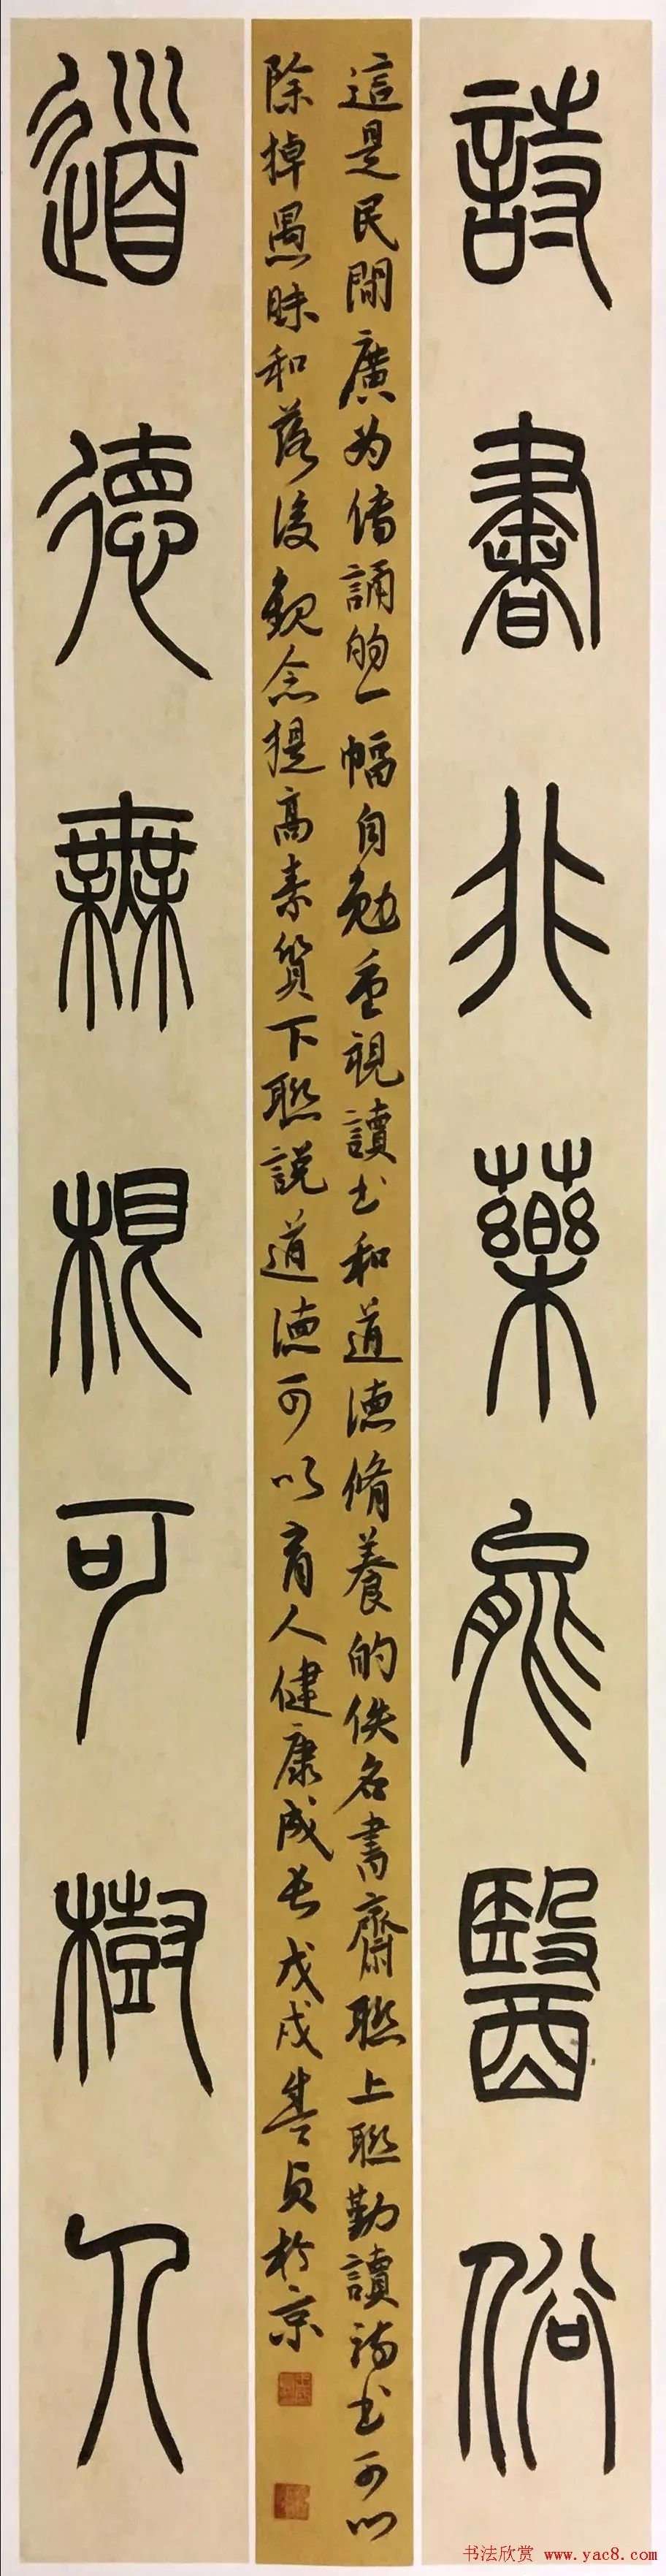 詩書非藥能醫俗
道德無根可樹人
這是民間廣为傳誦的一幅自勉重視讀书和道德脩養的佚名書齋聯上聯勤讀詩书可以
除掉愚昧和落後觀念提高素質下聯説道德可以育人健康成长戊戌善貞於京
书法欣赏 www.yac8.com